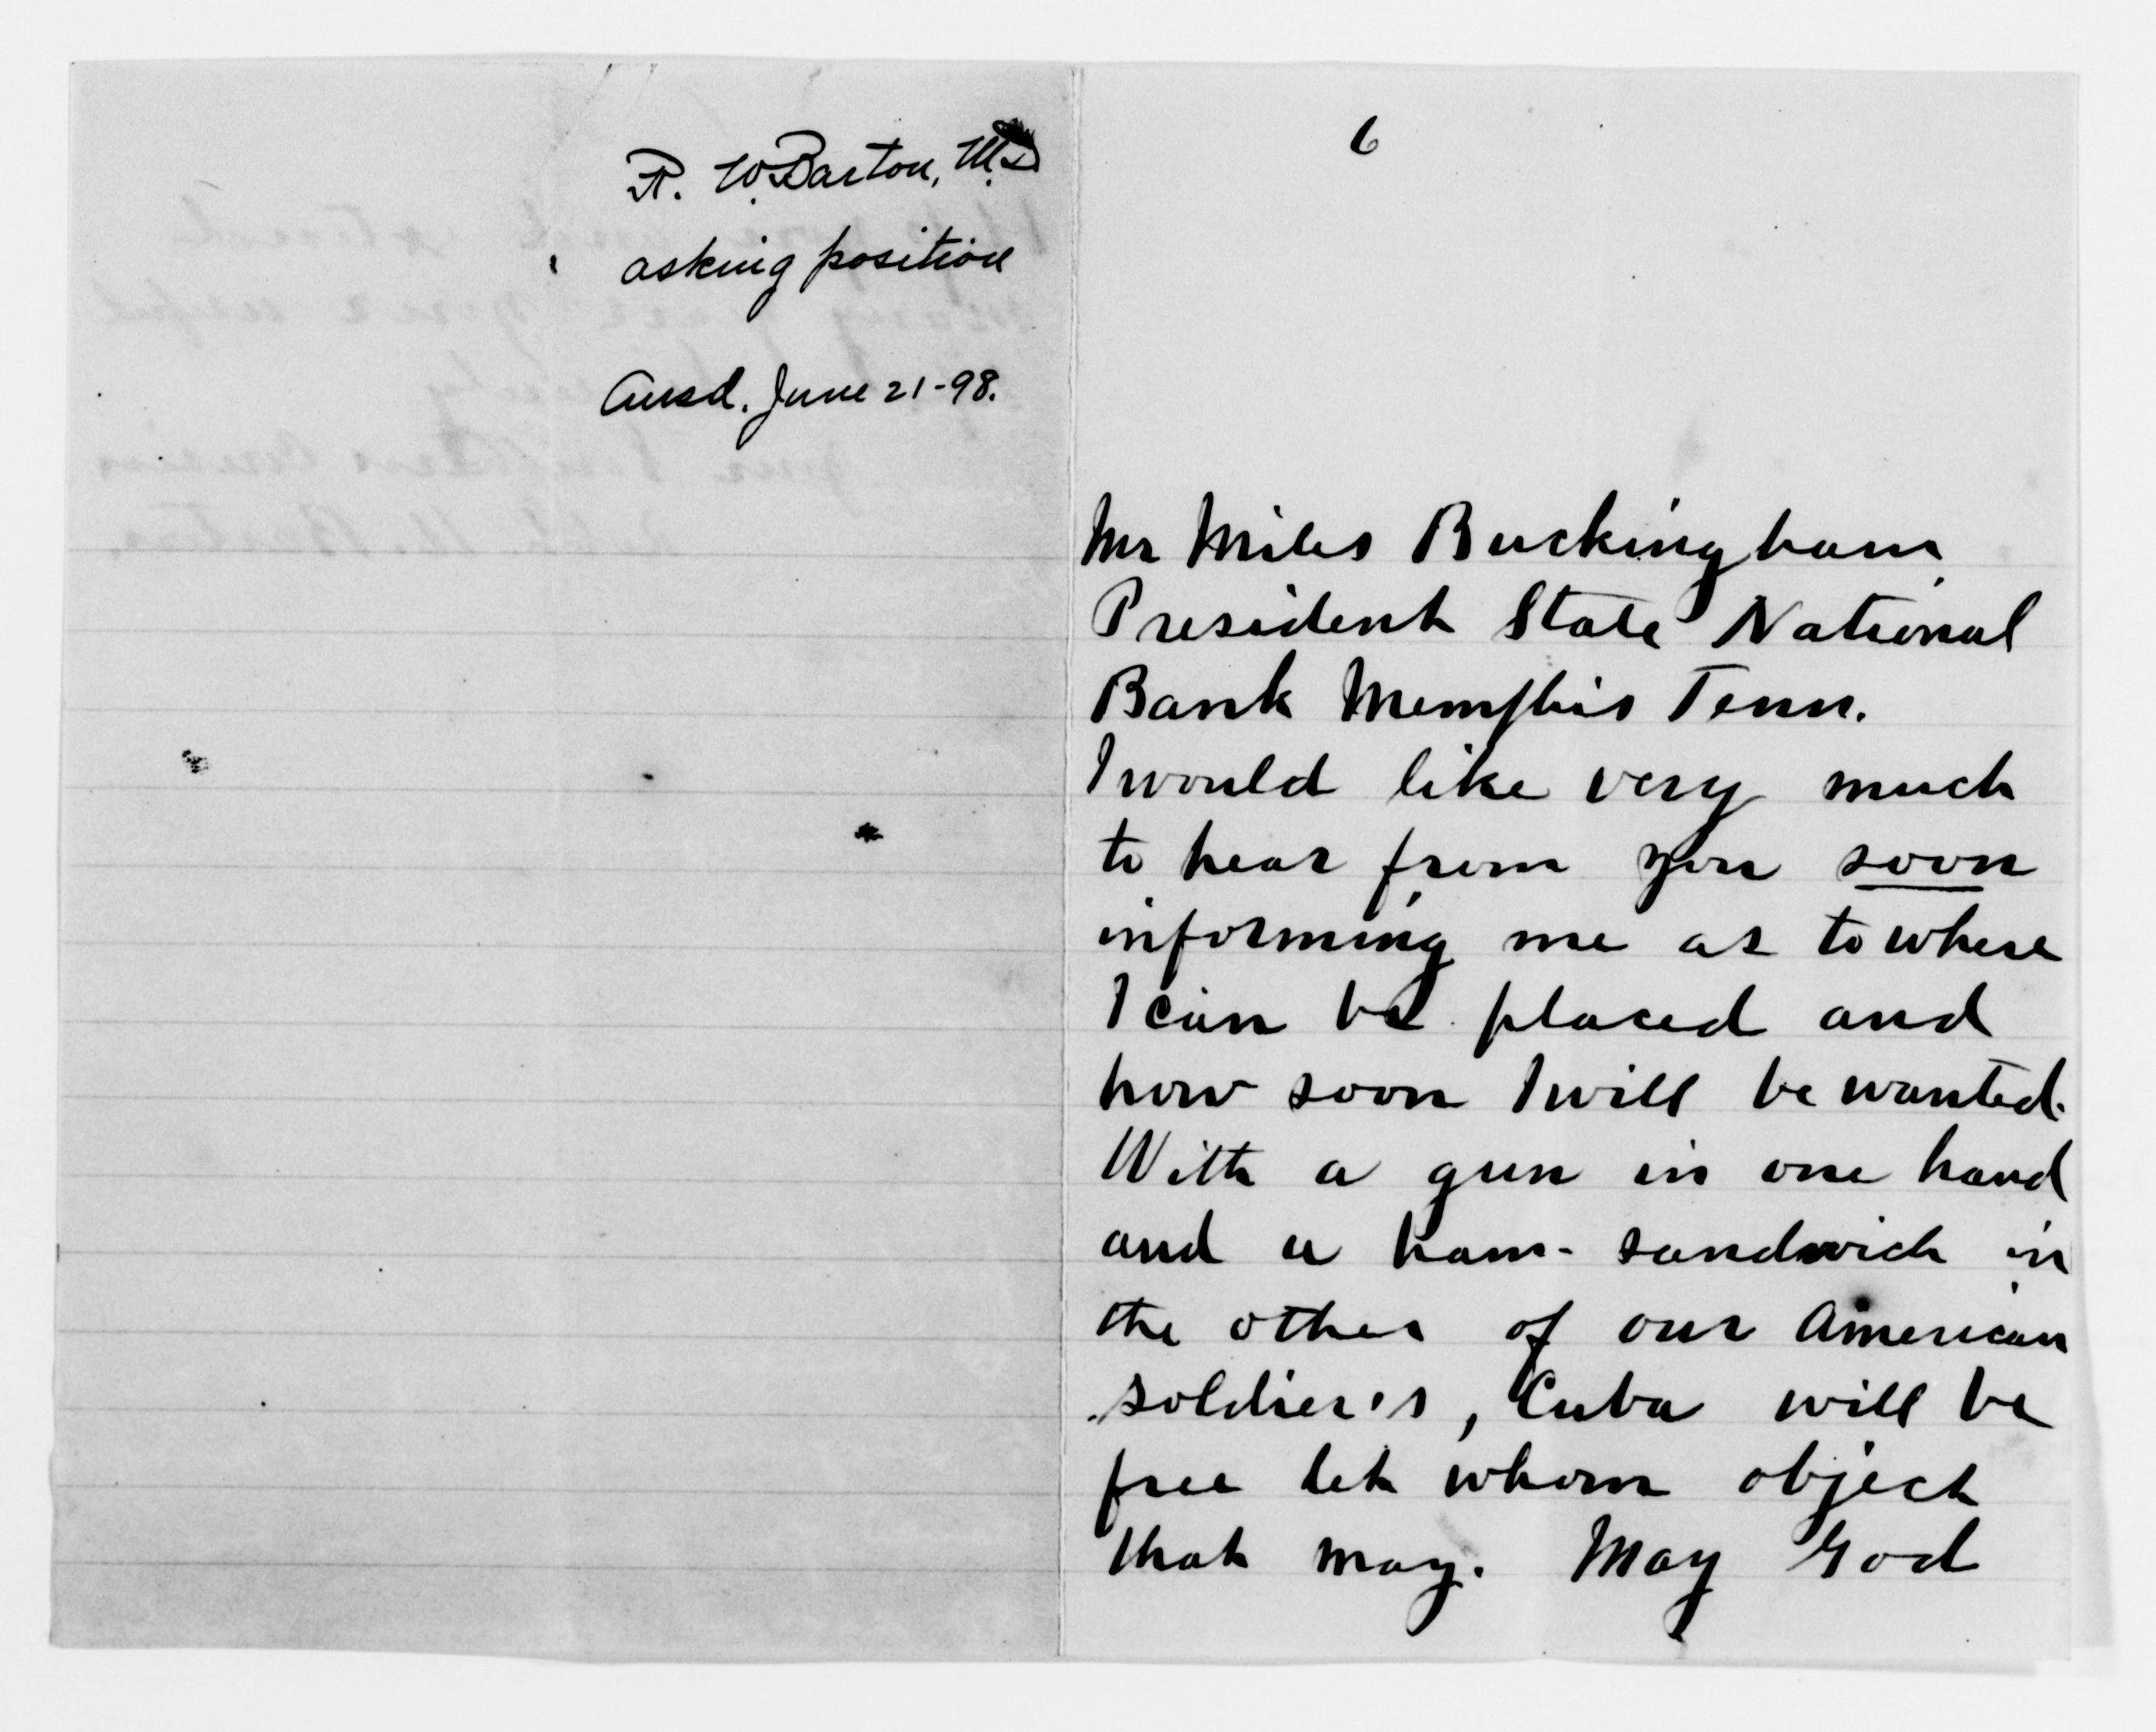 R. W. Barton, M.D
asking position
Ansd. June 21-98.
6
Mr Miles Buckingham,
President State National
Bank Memphis Tenn.
I would like very much
to hear from you soon
informing me as to where
I can be placed and
how soon I will be wanted.
With a gun in one hand
and a ham-sandwich in
the other of our American
soldier's, Cuba will be
free let whom object
that may. May God